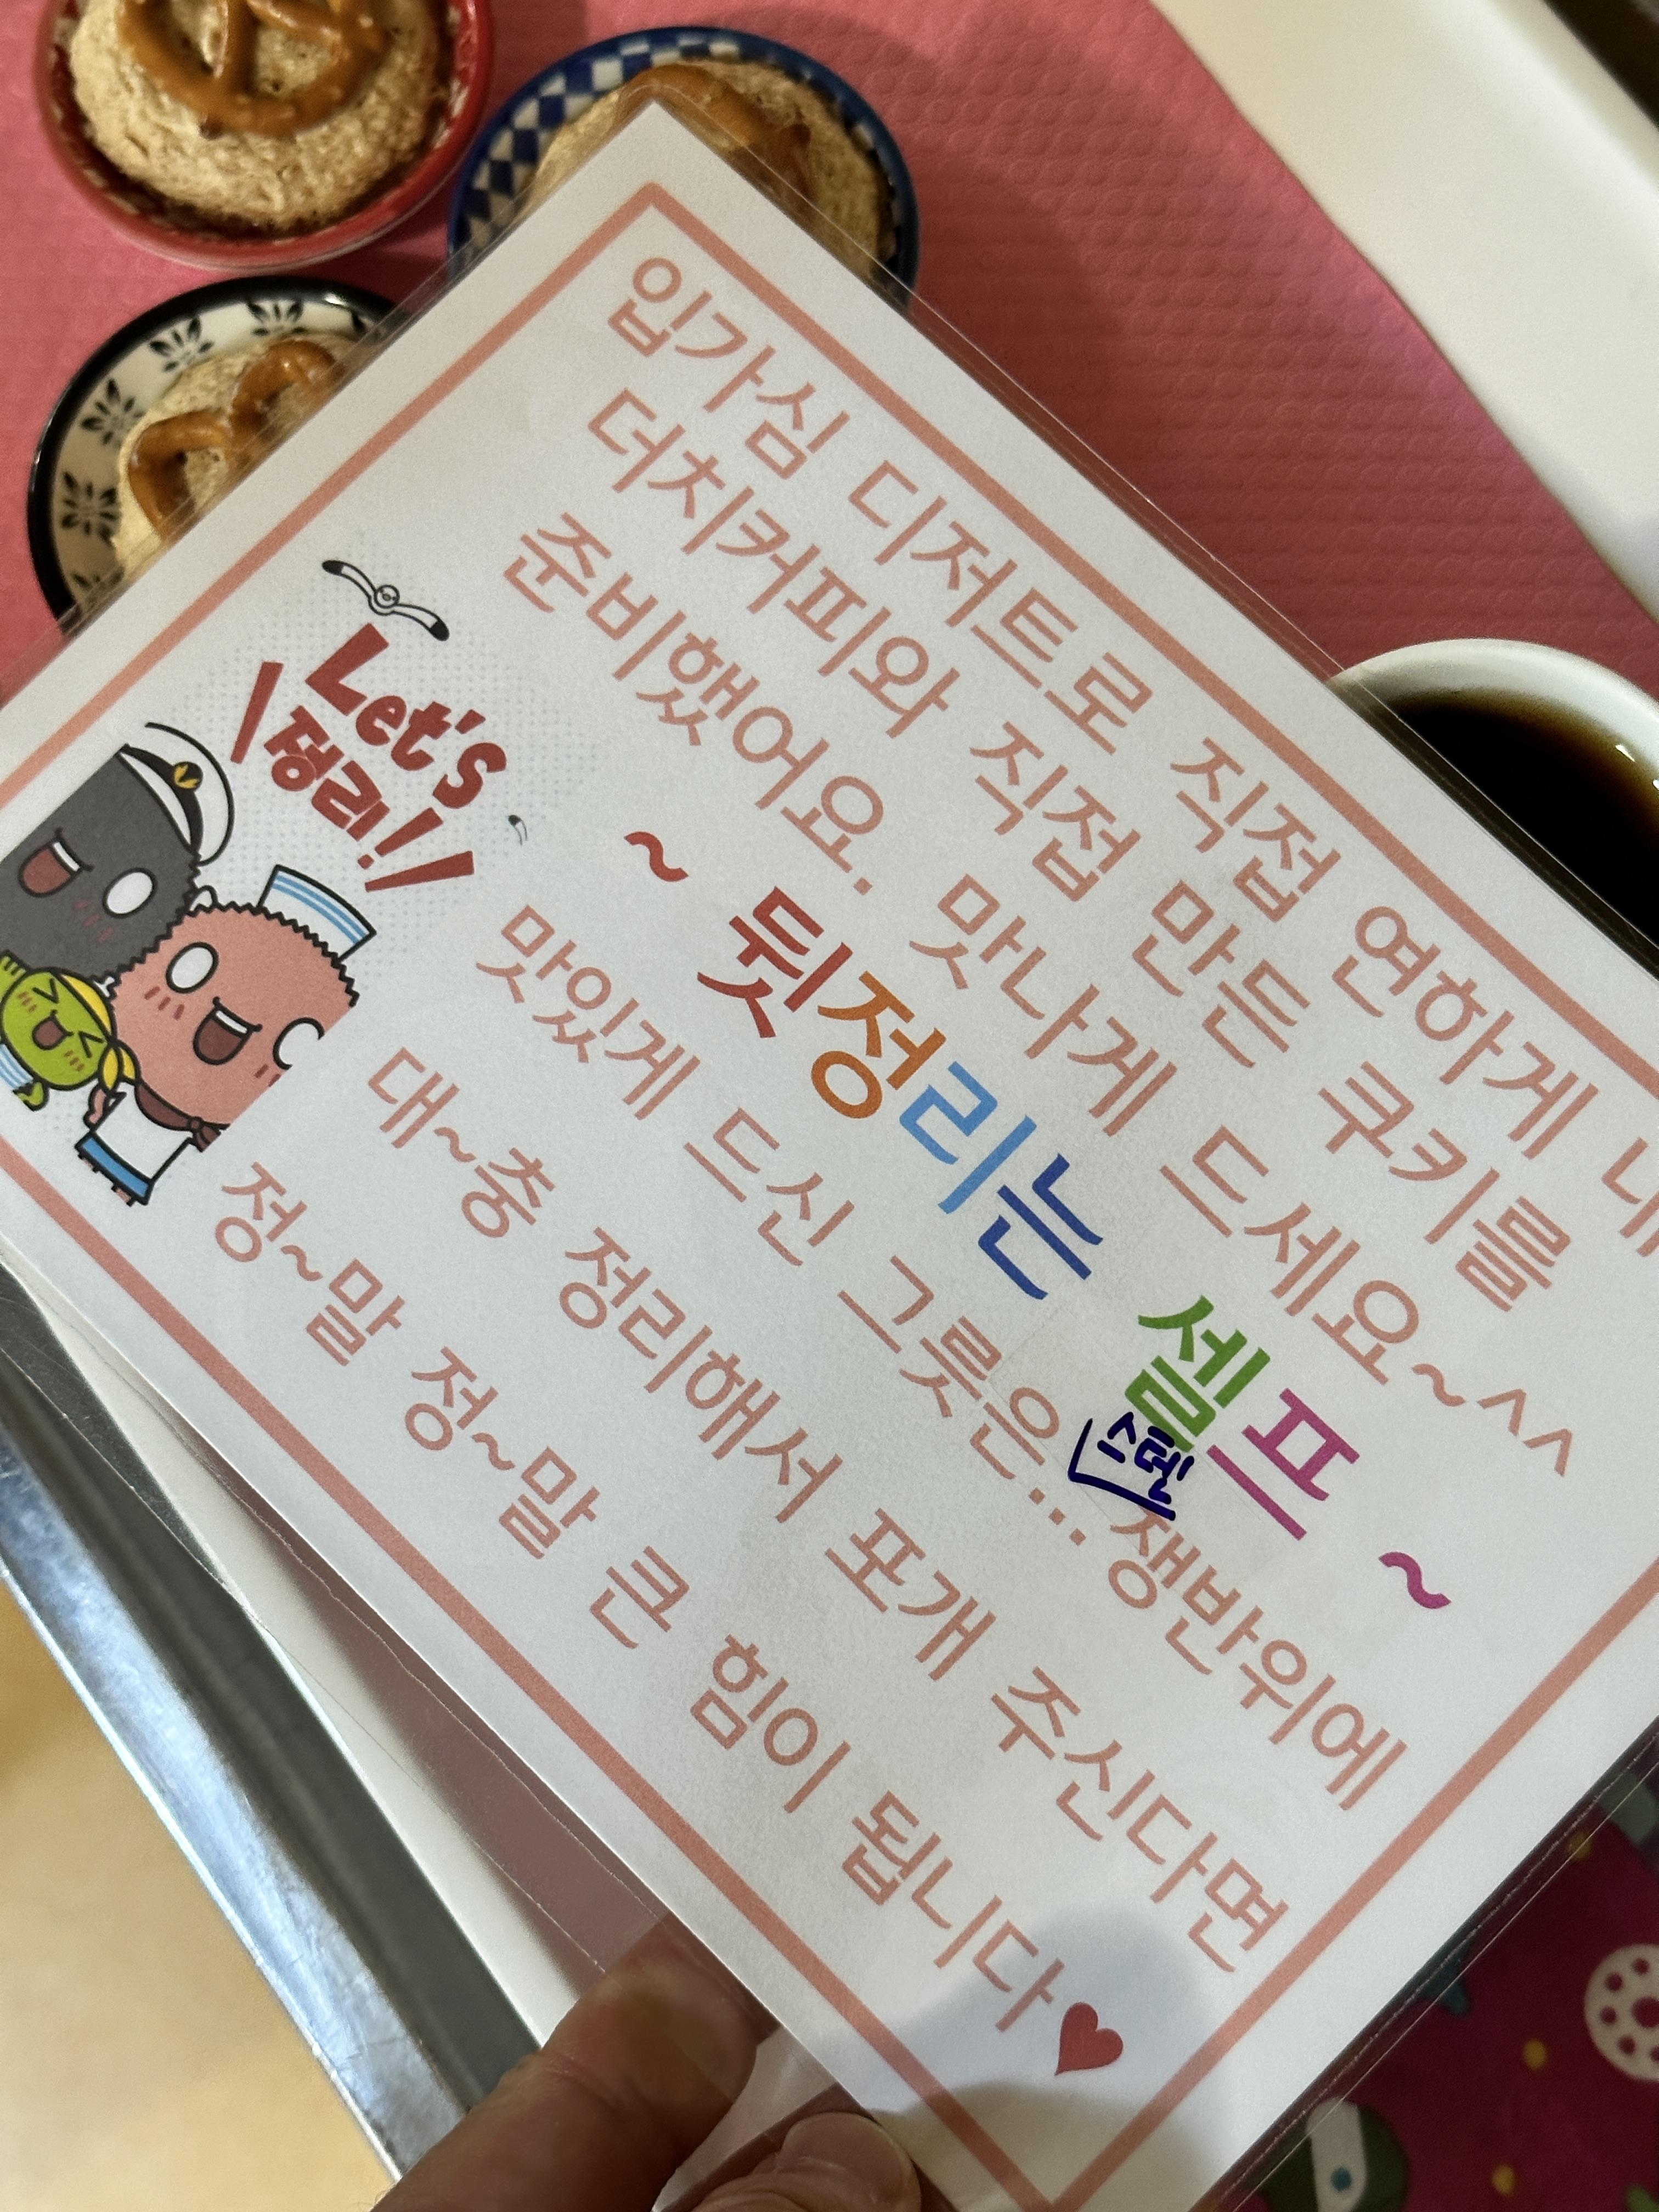 입가심 디저트로 직접 연하게
더치커피와 직접 만든 쿠키를
준비했어요. 맛나게 드세요~^^
~ 뒷정리는 셀프 ~
맛있게 드신 그릇은.. 스텐 쟁반위에
대~충 정리해서 포개 주신다면
정~말 정~말 큰 힘이 됩니다♥
Let's